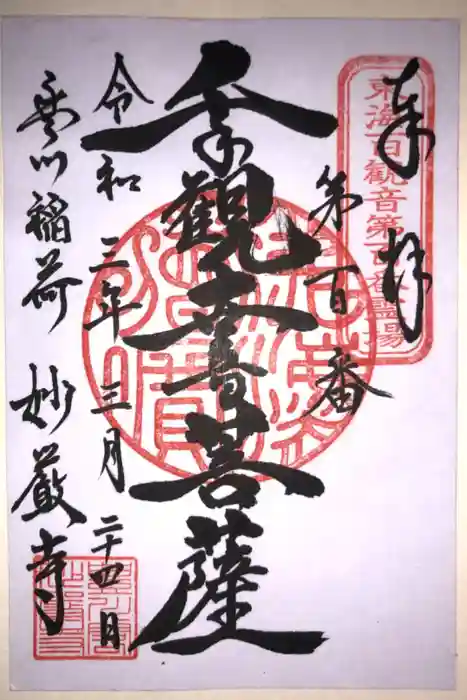 奉拜
東海百観音第百番霊場
第百番
千手觀世音菩薩
令和三年三月二十四日
豊川稲荷 妙厳寺